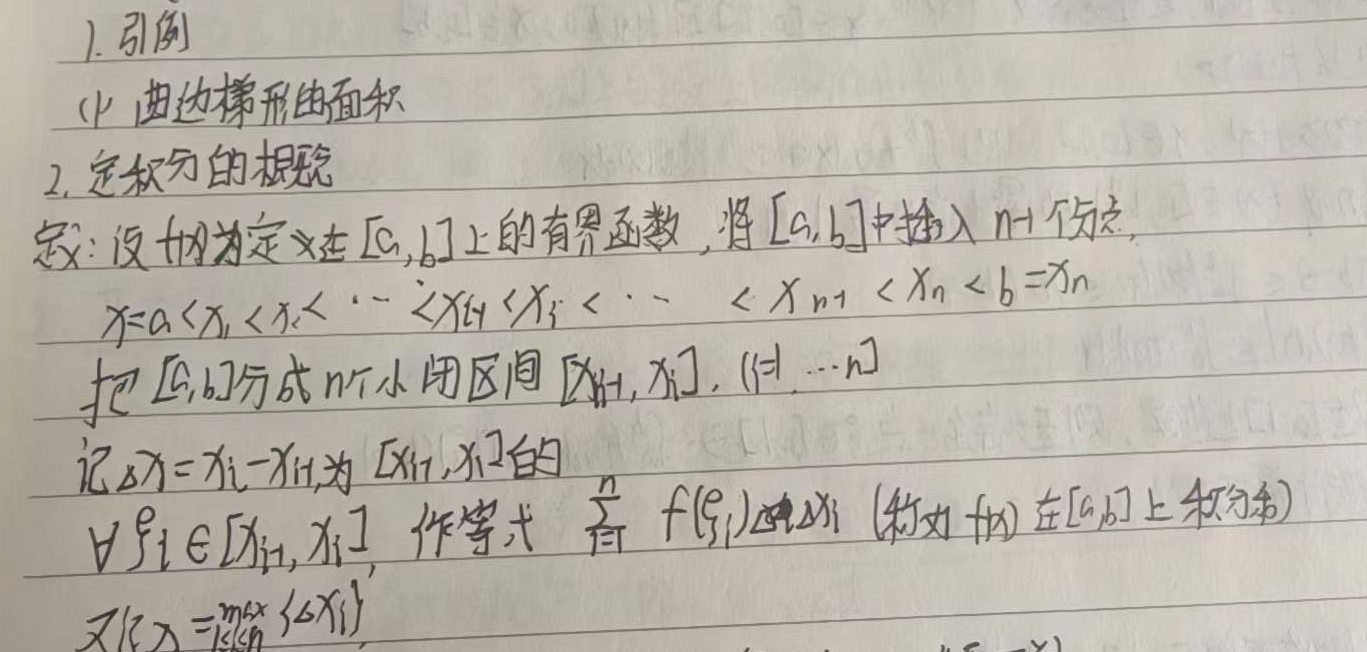 1. 引例
(1) 曲边梯形的面积
2. 定积分的概念
定义: 设 f(x)为定义在 [a,b] 上的有界函数, 将 [a,b]中插入 n-1 个分点,
x=a<x₁<x₂< ⋯ <xᵢ₋₁<xᵢ< ⋯ <xₙ₋₁<xₙ<b=xₙ
把 [a,b]分成 n个小闭区间 [xᵢ₋₁, xᵢ]. (i=1 ⋯ n]
记△x=xᵢ-xᵢ₋₁,为 [xᵢ₋₁,xᵢ]的
∀ξᵢ∈[xᵢ₋₁, xᵢ], 作等式 ∑ᵢ₌₁ⁿ f(ξᵢ)△xᵢ (称为 f(x) 在[a,b]上 积分和)
又记λ=max{△xᵢ},